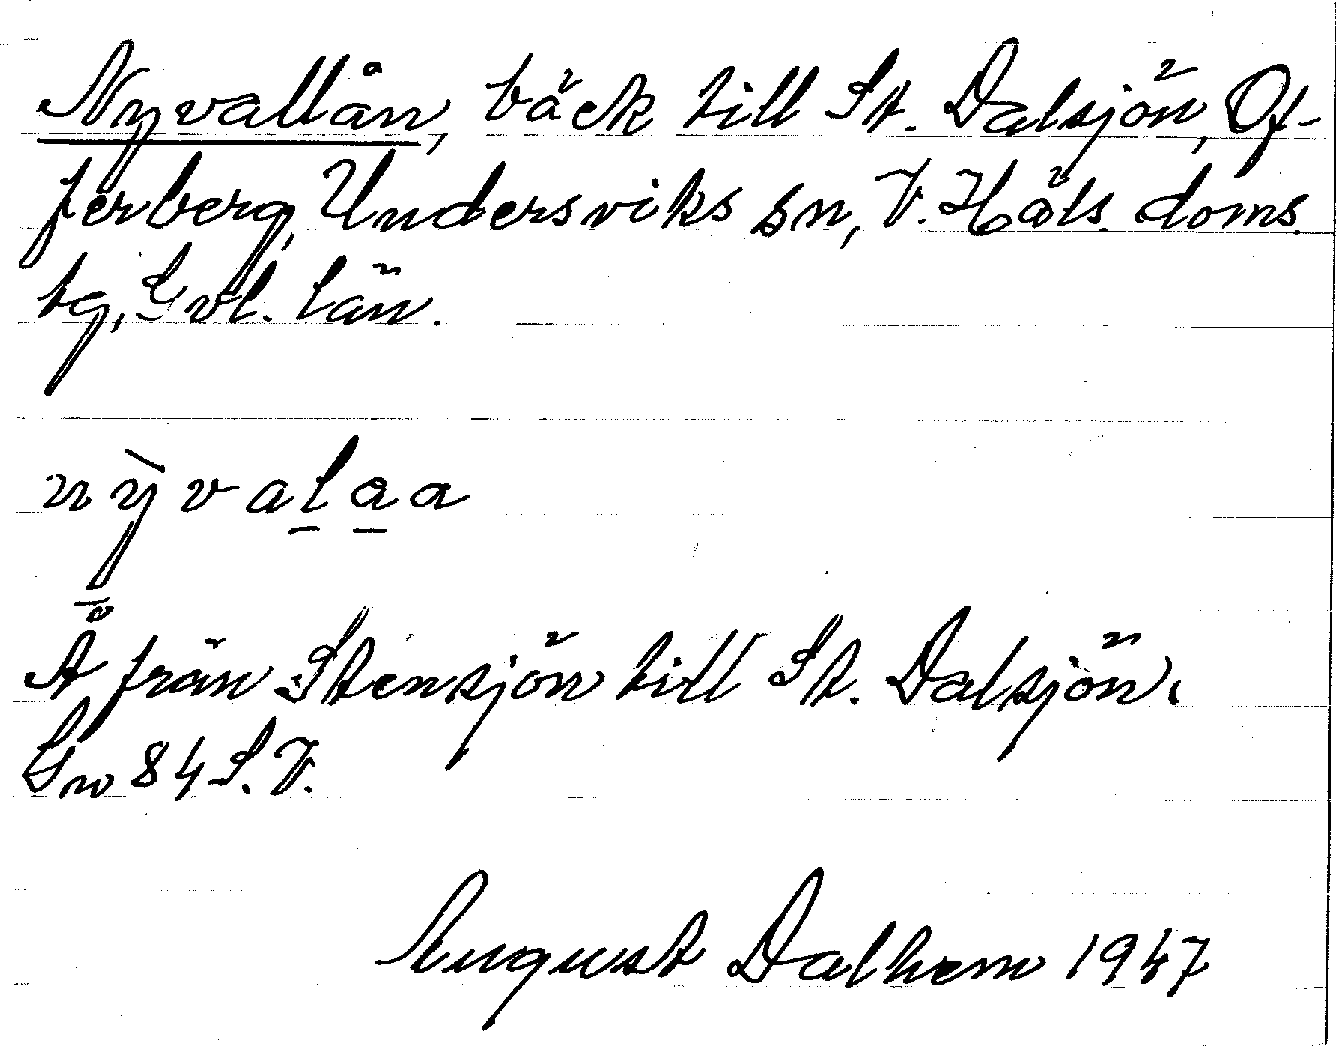 Nyvallån, bäck till St. Dalsjön, Of-
ferberg, Undersviks sn, V. Häls. doms.
tg, Gvl. län.
nỳvalaa
Å från Stensjön till St. Dalsjön.
Gw 84 S.V.
August Dalhem 1947